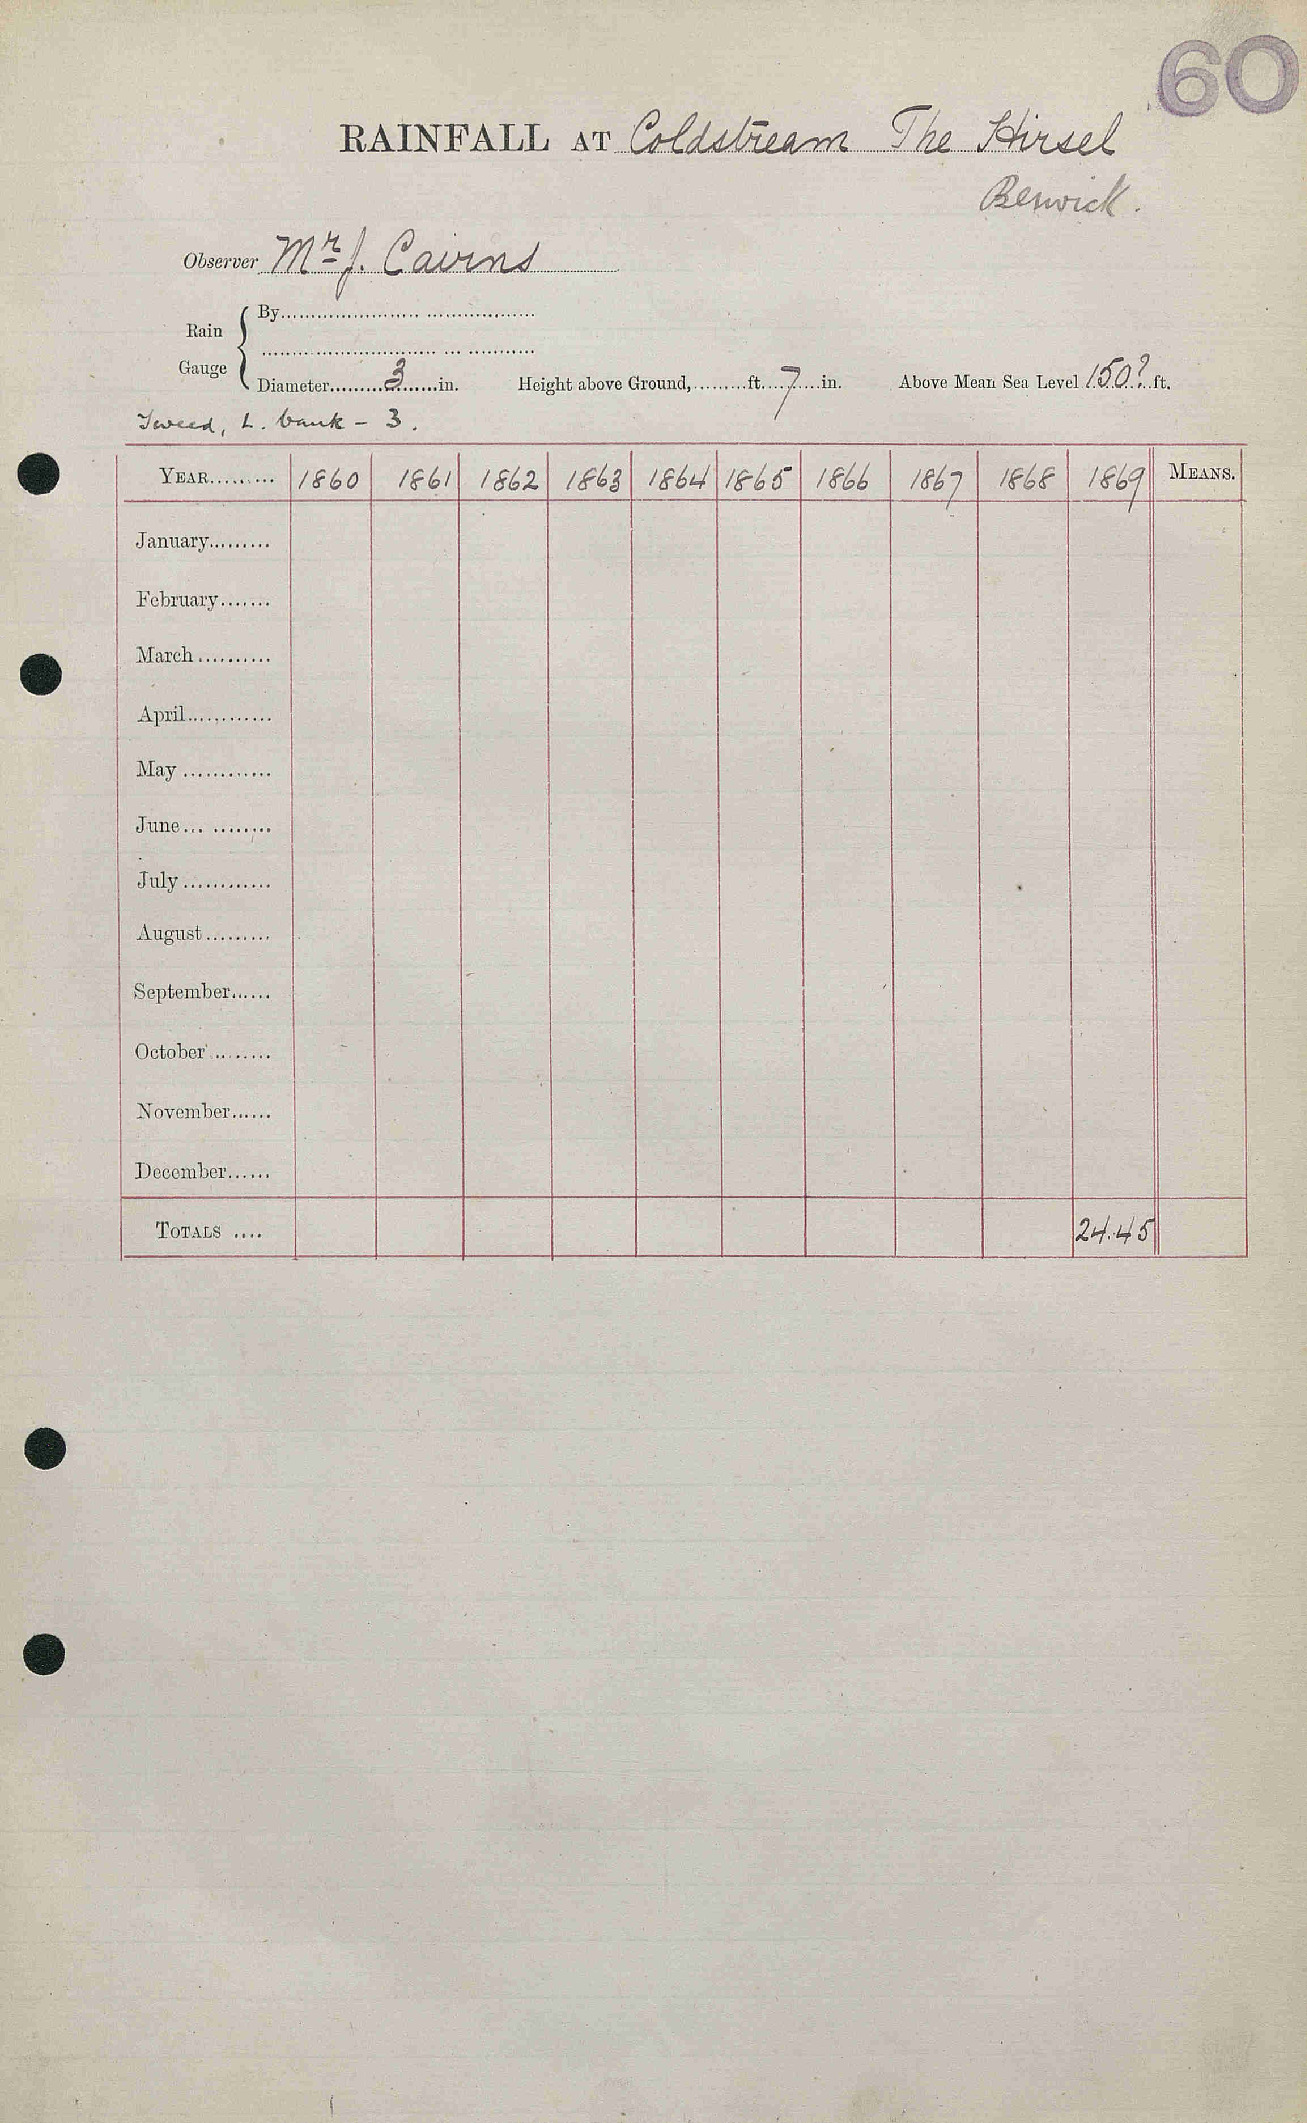 60
RAINFALL AT Coldstream The Hirsel
Berwick.
Observer Mr J. Cairns
Rain Gauge
By
Diameter 3 in. Height above Ground, ft. 7 in. Above Mean Sea Level 150? ft.
Tweed, L. bank - 3.
YEAR 1860 1861 1862 1863 1864 1865 1866 1867 1868 1869 MEANS.
January
February
March
April
May
June
July
August
September
October
November
December
TOTALS 24.45